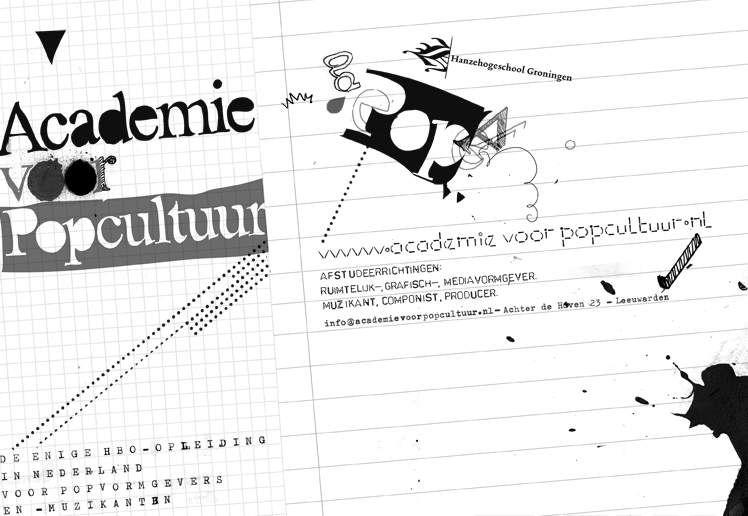 Academie
voor
Popcultuur
DE ENIGE HBO-OPLEIDING
IN NEDERLAND
VOOR POPVORMGEVERS
EN -MUZIKANTEN
Hanzehogeschool Groningen
www.academievoorpopcultuur.nl
AFSTUDEERRICHTINGEN:
RUIMTELIJK-, GRAFISCH-, MEDIAVORMGEVER.
MUZIKANT, COMPONIST, PRODUCER.
info@academievoorpopcultuur.nl - Achter de Hoven 23 - Leeuwarden